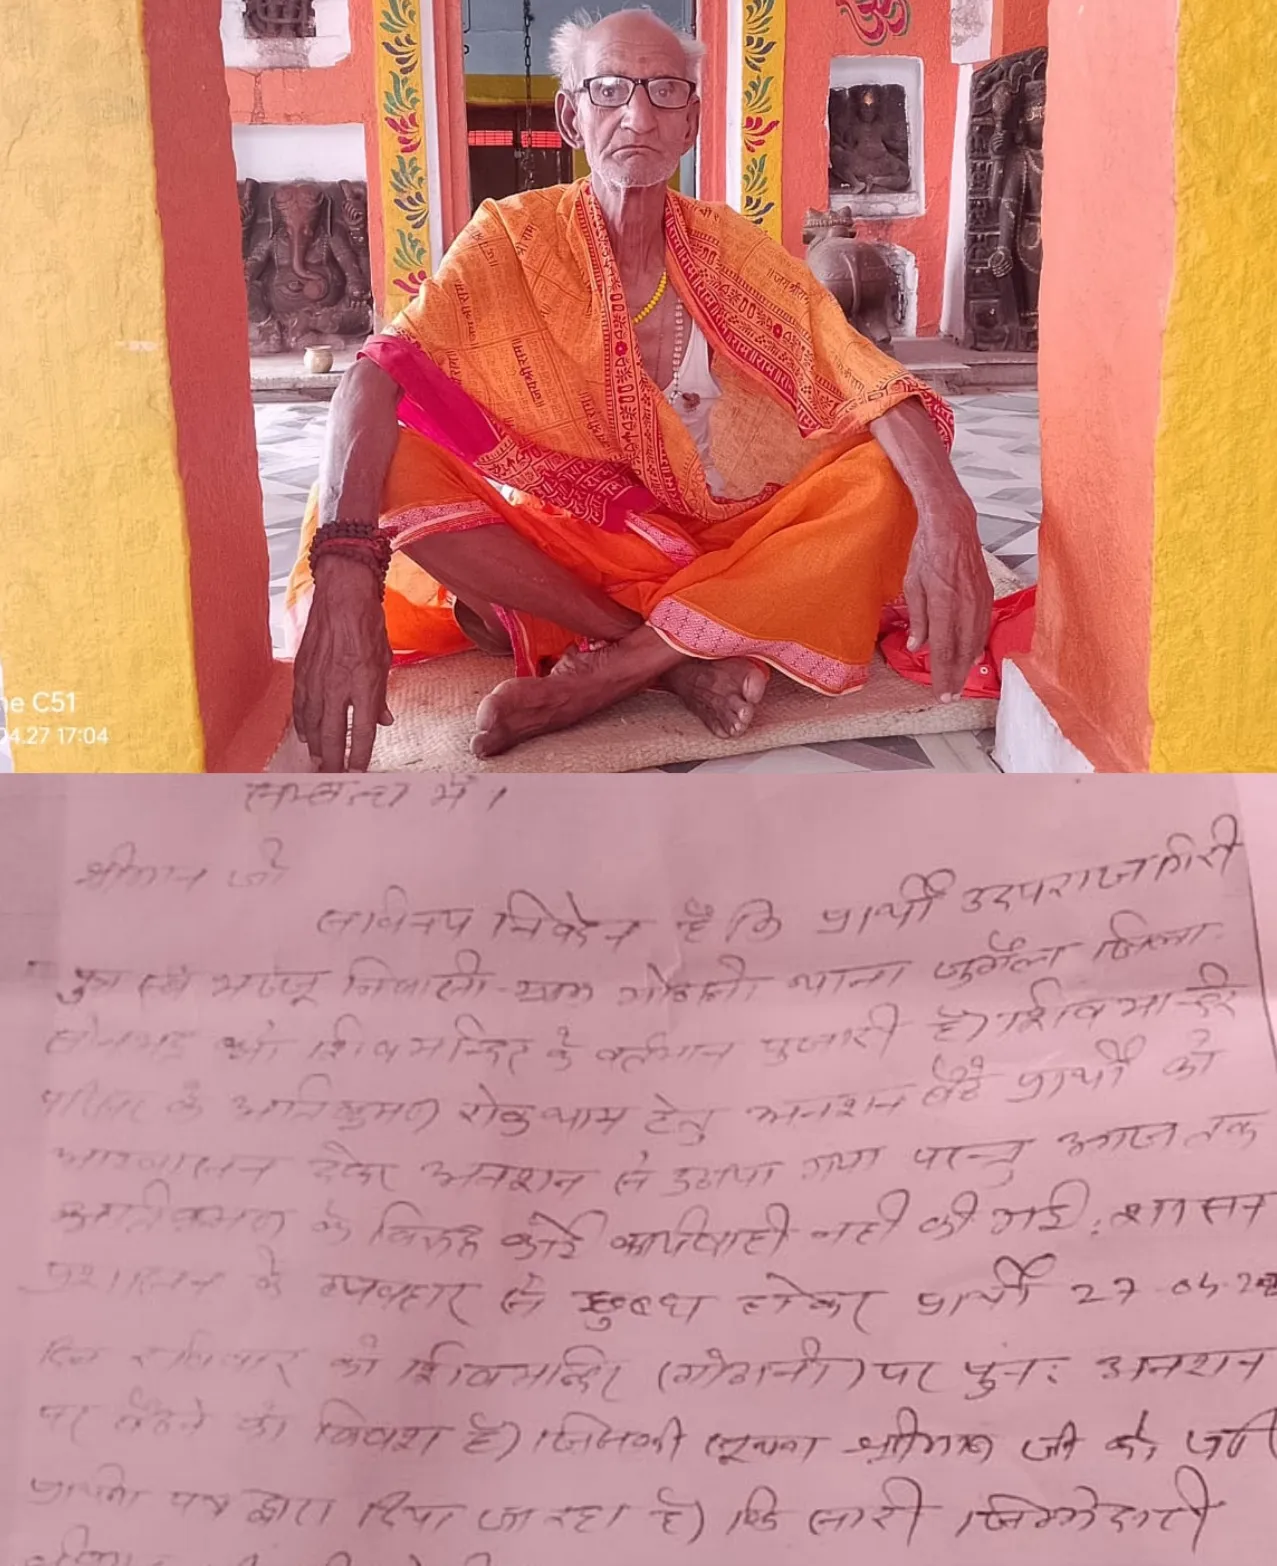 ne C51
04.27 17:04
सम्बन्ध में।
श्रीमान जी
सविनय निवेदन है कि प्रार्थी उदयराज गिरी
पुत्र स्व० निवासी ग्राम गोठानी थाना जुगैल जिला
सोनभद्र शिव मन्दिर के वर्तमान पुजारी है। शिव मन्दिर
परिसर के अतिक्रमण रोकथाम हेतु अनशन बैठे प्रार्थी को
आश्वासन देकर अनशन से उठाया गया परन्तु आज तक
अतिक्रमण के विरुद्ध कोई कार्यवाही नही की गई। शासन
प्रशासन के व्यवहार से छुब्ध होकर प्रार्थी 27-04-
दिन रविवार को शिवमन्दिर (गोठानी) पर पुनः अनशन
पर बैठने को विवश है। जिसकी सूचना श्रीमान जी को
प्रार्थना पत्र द्वारा दिया जा रहा है। कि सारी जिम्मेदारी